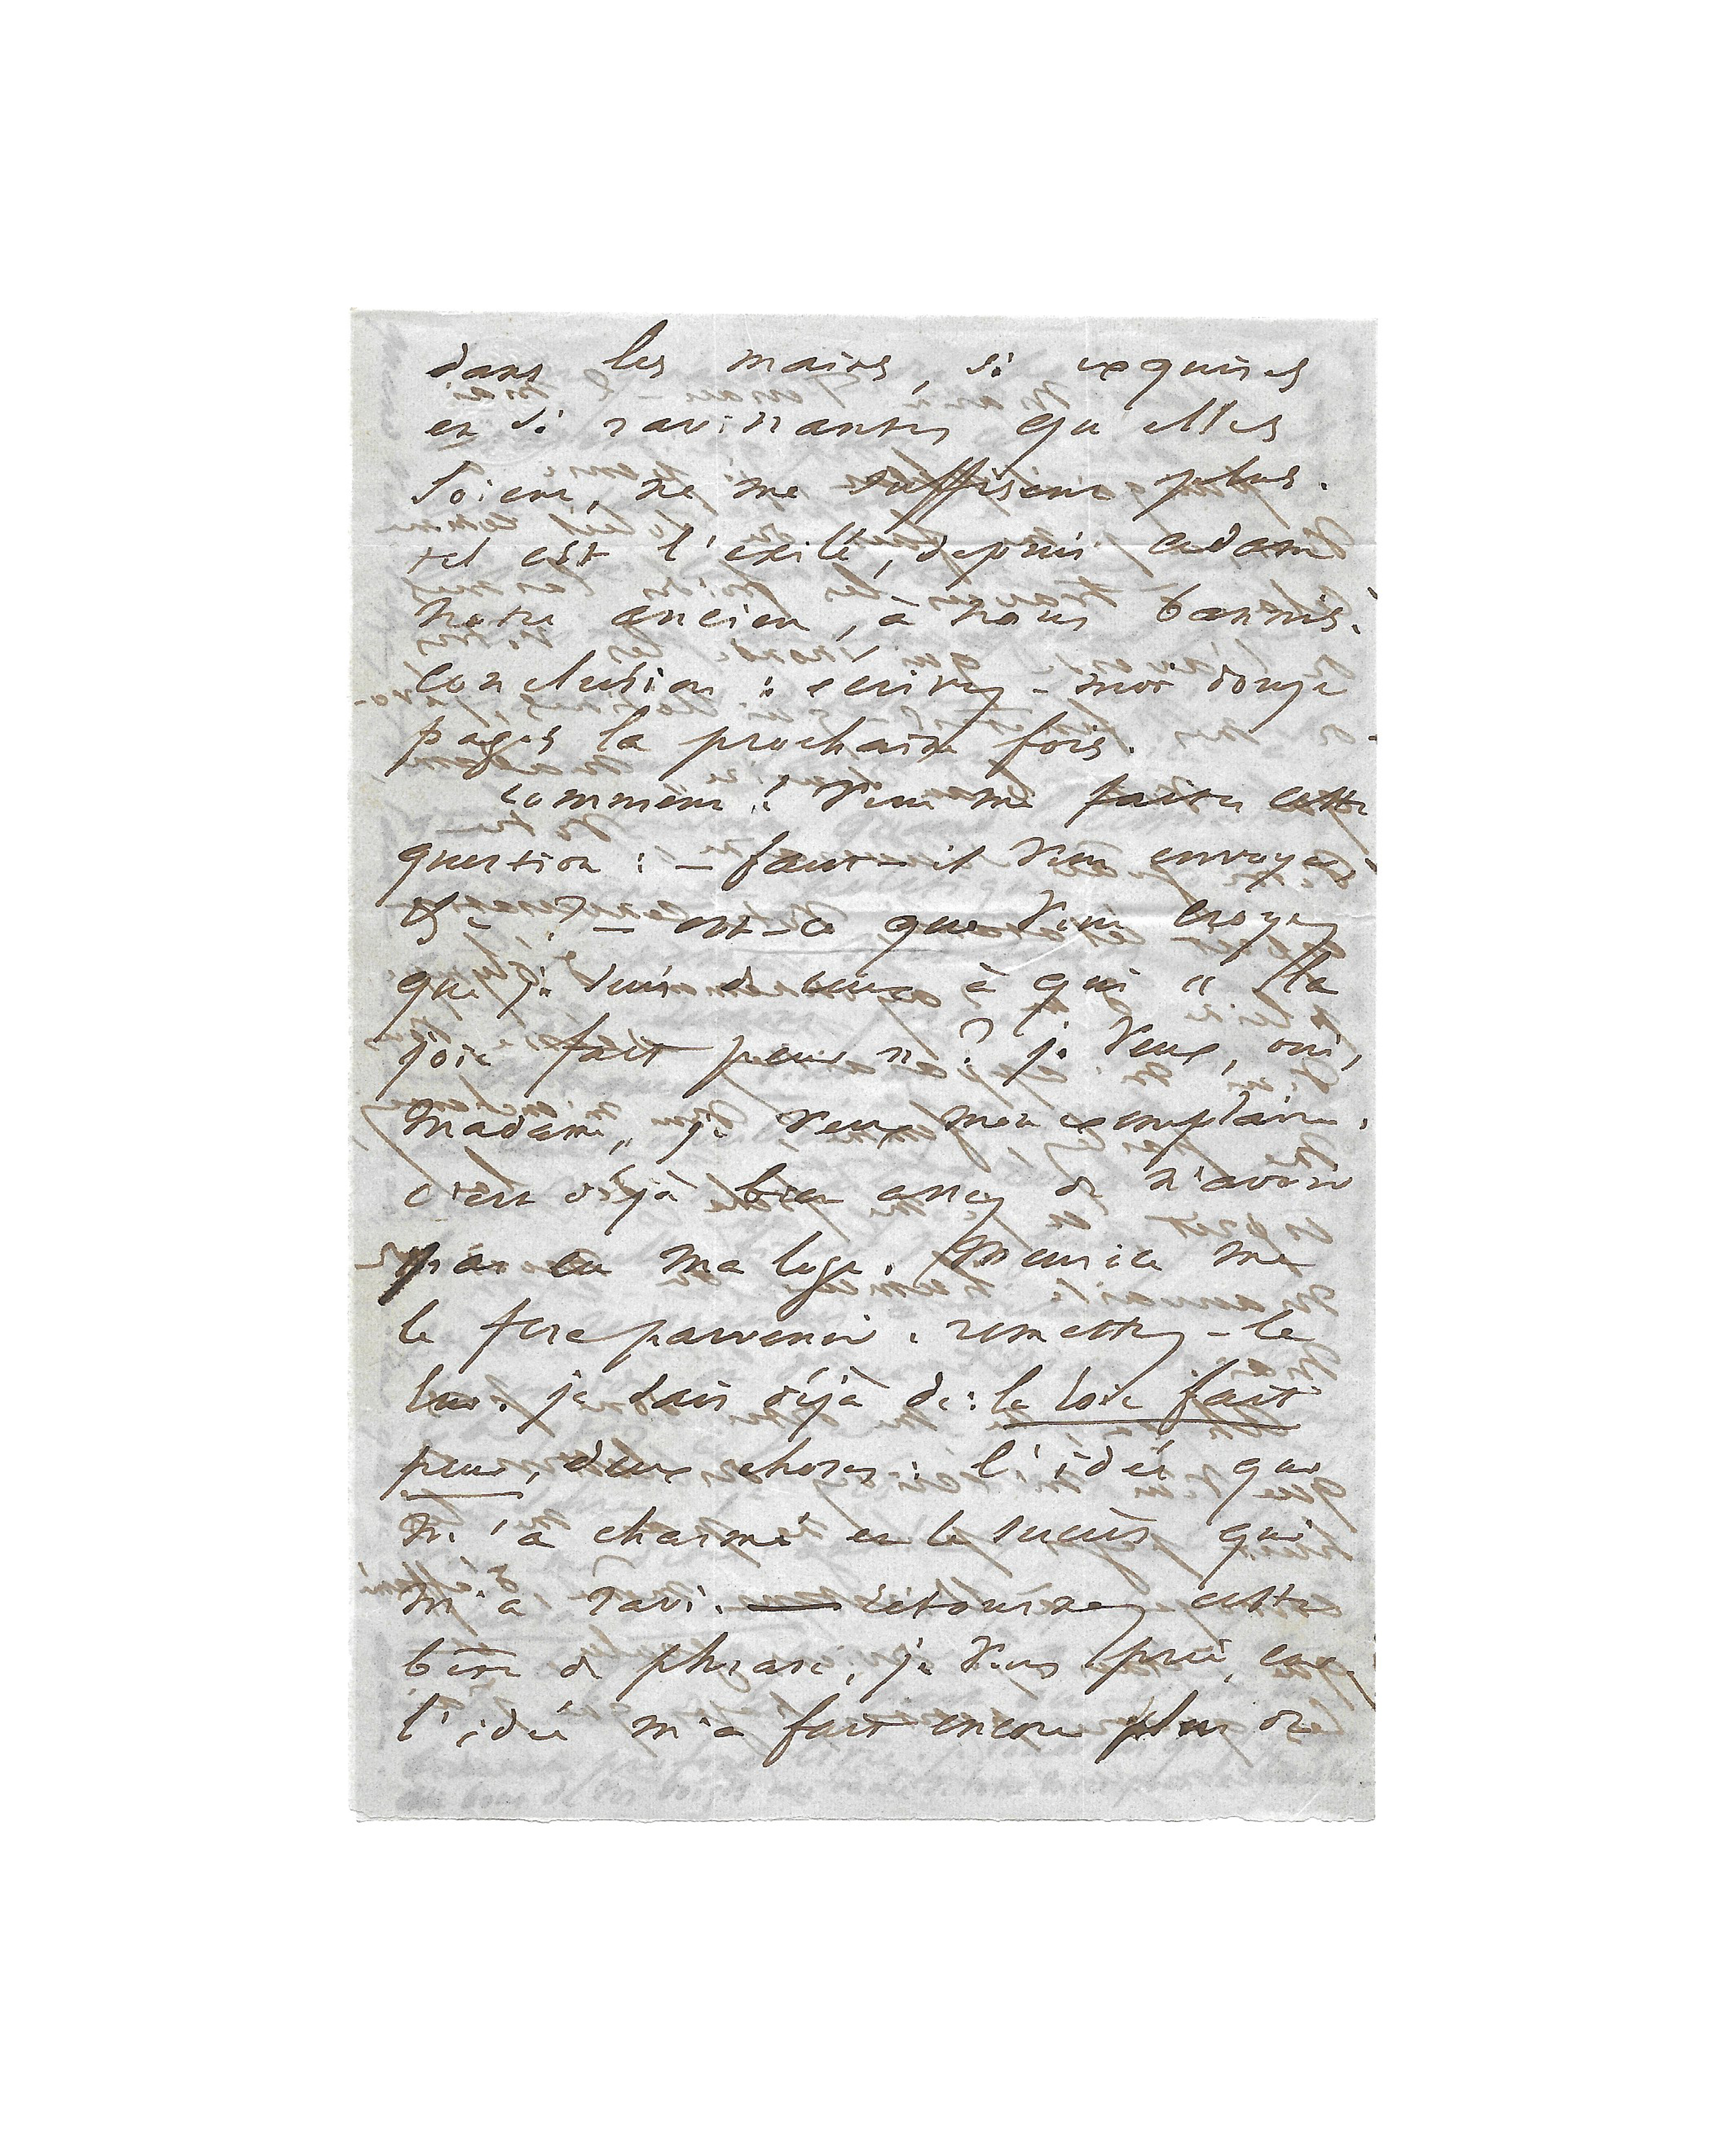 dans les mains, si exquises
et si ravissantes qu'elles
soient, ne me suffisent plus.
tel est l'exilé, depuis adam
notre ancien, à nous bannis.
conclusion : écrivez-moi douze
pages la prochaine fois.
comment ! vous me faites cette
question : — faut-il vous envoyer
etc ? — est-ce que vous croyez
que je suis de ceux à qui « la
joie fait peur » ? je veux, oui,
madame, je veux mon exemplaire.
c'est déjà bien assez de n'avoir
pas eu ma loge. Meurice me
le fera parvenir. remettez-le
lui. je sais déjà de : la joie fait
peur, deux choses : l'idée qui
m'a charmé et le succès qui
m'a ravi. — retournez cette
fin de phrase, je vous prie, car
l'idée m'a fait encore plus de